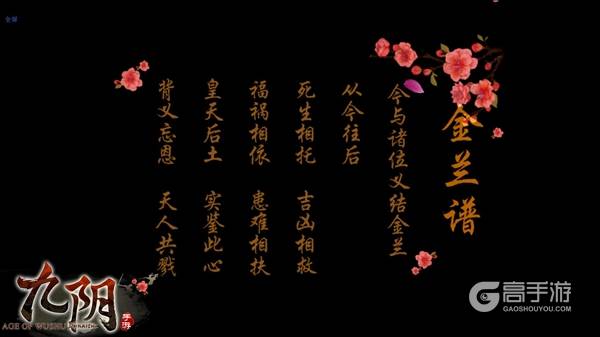 全屏
金兰谱
今与诸位义结金兰
从今往后
死生相托 吉凶相救
福祸相依 患难相扶
皇天后土 实鉴此心
背义忘恩 天人共戮
九阴
手游
AGE OF WUSHU DYNASTY
高手游
GAOSHOUYOU.COM